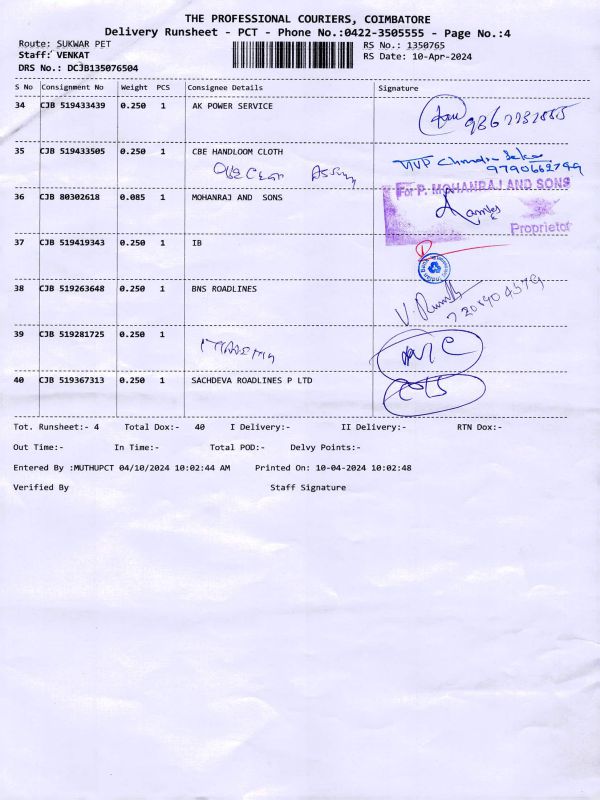 THE PROFESSIONAL COURIERS, COIMBATORE
Delivery Runsheet - PCT - Phone No.:0422-3505555 - Page No.:4
Route: SUKWAR PET RS No.: 1350765
Staff: VENKAT RS Date: 10-Apr-2024
DRS No.: DCJB135076504
S No Consignment No Weight PCS Consignee Details Signature
34 CJB 519433439 0.250 1 AK POWER SERVICE
35 CJB 519433505 0.250 1 CBE HANDLOOM CLOTH
9790662799
36 CJB 80302618 0.085 1 MOHANRAJ AND SONS
For P. MOHANRAJ AND SONS
Proprietor
37 CJB 519419343 0.250 1 IB
38 CJB 519263648 0.250 1 BNS ROADLINES
39 CJB 519281725 0.250 1
40 CJB 519367313 0.250 1 SACHDEVA ROADLINES P LTD
Tot. Runsheet:- 4 Total Dox:- 40 I Delivery:- II Delivery:- RTN Dox:-
Out Time:- In Time:- Total POD:- Delvy Points:-
Entered By :MUTHUPCT 04/10/2024 10:02:44 AM Printed On: 10-04-2024 10:02:48
Verified By Staff Signature